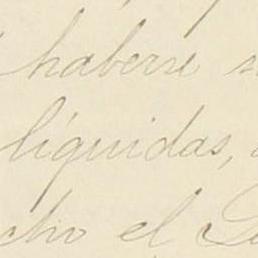 haberse
líquidas,
cho el